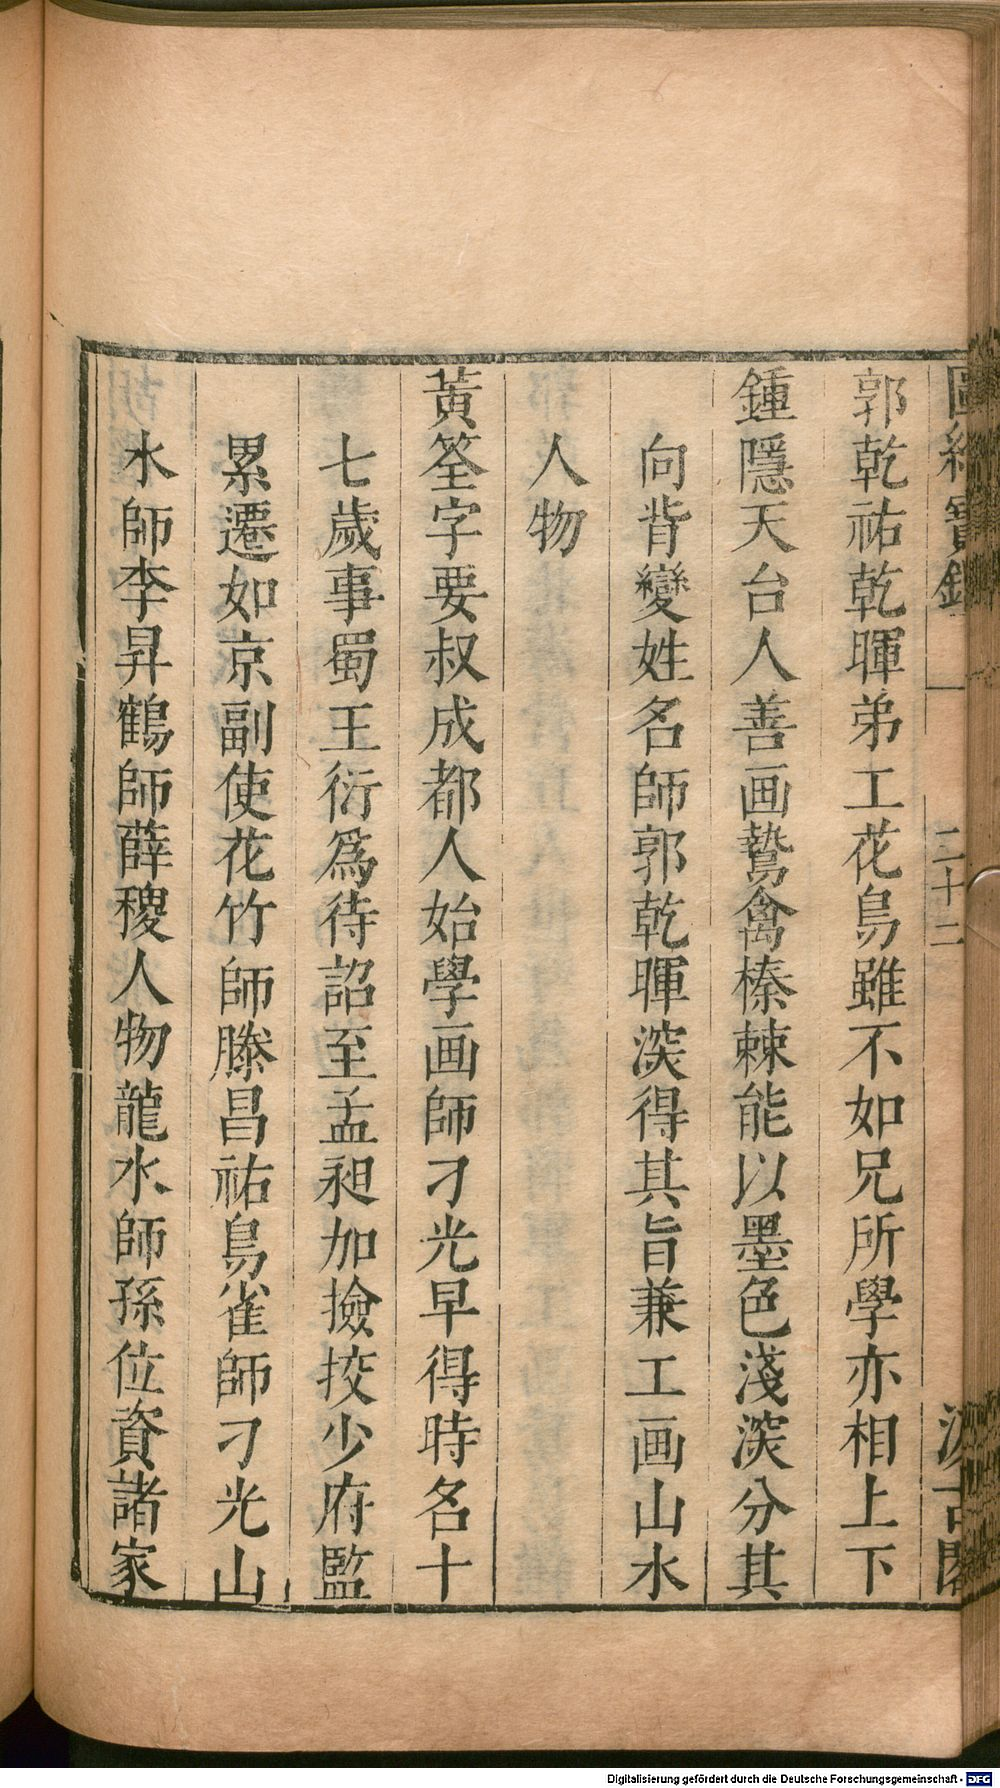 郭乾祐乾暉弟工花鳥雖不如兄所學亦相上下
鍾隱天台人善画鷙禽榛棘能以墨色淺深分其
向背變姓名師郭乾暉深得其旨兼工画山水
人物
黃筌字要叔成都人始學画師刁光早得時名十
七歲事蜀王衍爲待詔至孟昶加撿挍少府監
累遷如京副使花竹師滕昌祐鳥雀師刁光山
水師李昇鶴師薛稷人物龍水師孫位資諸家
圖繪寶鑑 二十二 汲古閣
Digitalisierung gefördert durch die Deutsche Forschungsgemeinschaft - DFG